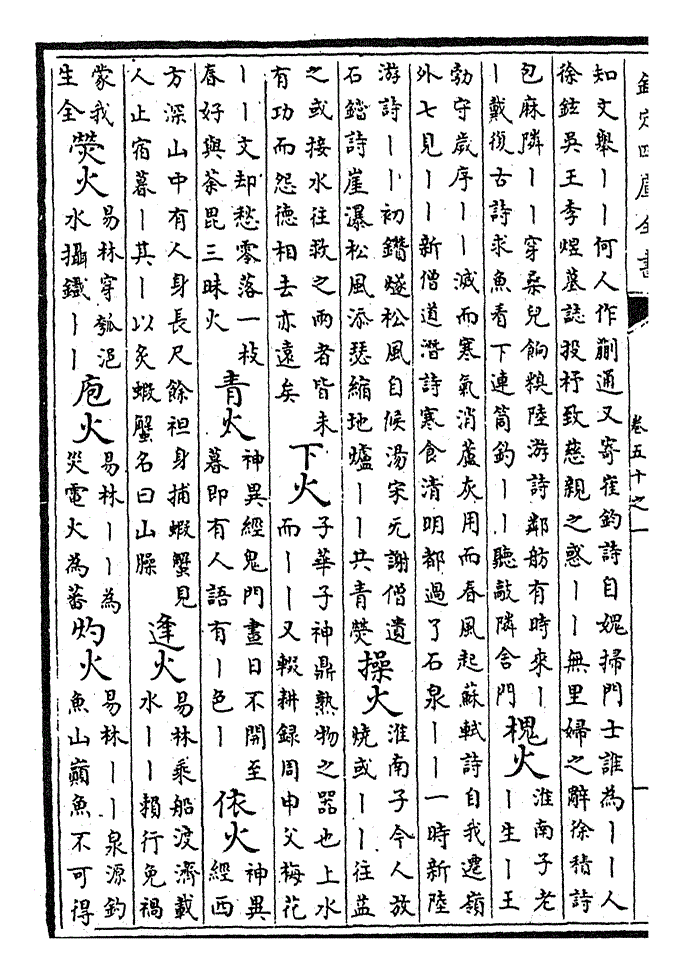 欽定四庫全書 卷五十之一 一
知文舉丨丨何人作蒯通又寄崔鈞詩自媿掃門士誰為丨丨人
徐鉉吳王李煜墓誌投杼致慈親之惑丨丨無里婦之辭徐積詩
包麻隣丨丨穿桑兒餉糗陸游詩鄰舫有時來丨
丨戴復古詩求魚看下連筒釣丨丨聽敲隣舍門
槐火
淮南子老
丨生丨王
勃守歲序丨丨減而寒氣消蘆灰用而春風起蘇軾詩自我遷嶺
外七見丨丨新僧道潛詩寒食清明都過了石泉丨丨一時新陸
游詩丨丨初鑽燧松風自候湯宋无謝僧遺
石鐺詩崖瀑松風添瑟縮地爐丨丨共青熒
操火
淮南子今人放
燒或丨丨往益
之或接水往救之兩者皆未
有功而怨德相去亦遠矣
下火
子華子神鼎熟物之器也上水
而丨丨又輟耕録周申父梅花
丨丨文却愁零落一枝
春好與荼毘三昧火
青火
神異經鬼門晝日不開至
暮即有人語有丨色丨
依火
神異
經西
方深山中有人身長尺餘袒身捕蝦蟹見
人止宿暮丨其丨以炙蝦蟹名曰山臊
逢火
易林乘船渡濟載
水丨丨賴行免禍
蒙我
生全
熒火
易林穿瓠浥
水攝鐵丨丨
庖火
易林丨丨為
災電火為菑
灼火
易林丨丨泉源釣
魚山巔魚不可得